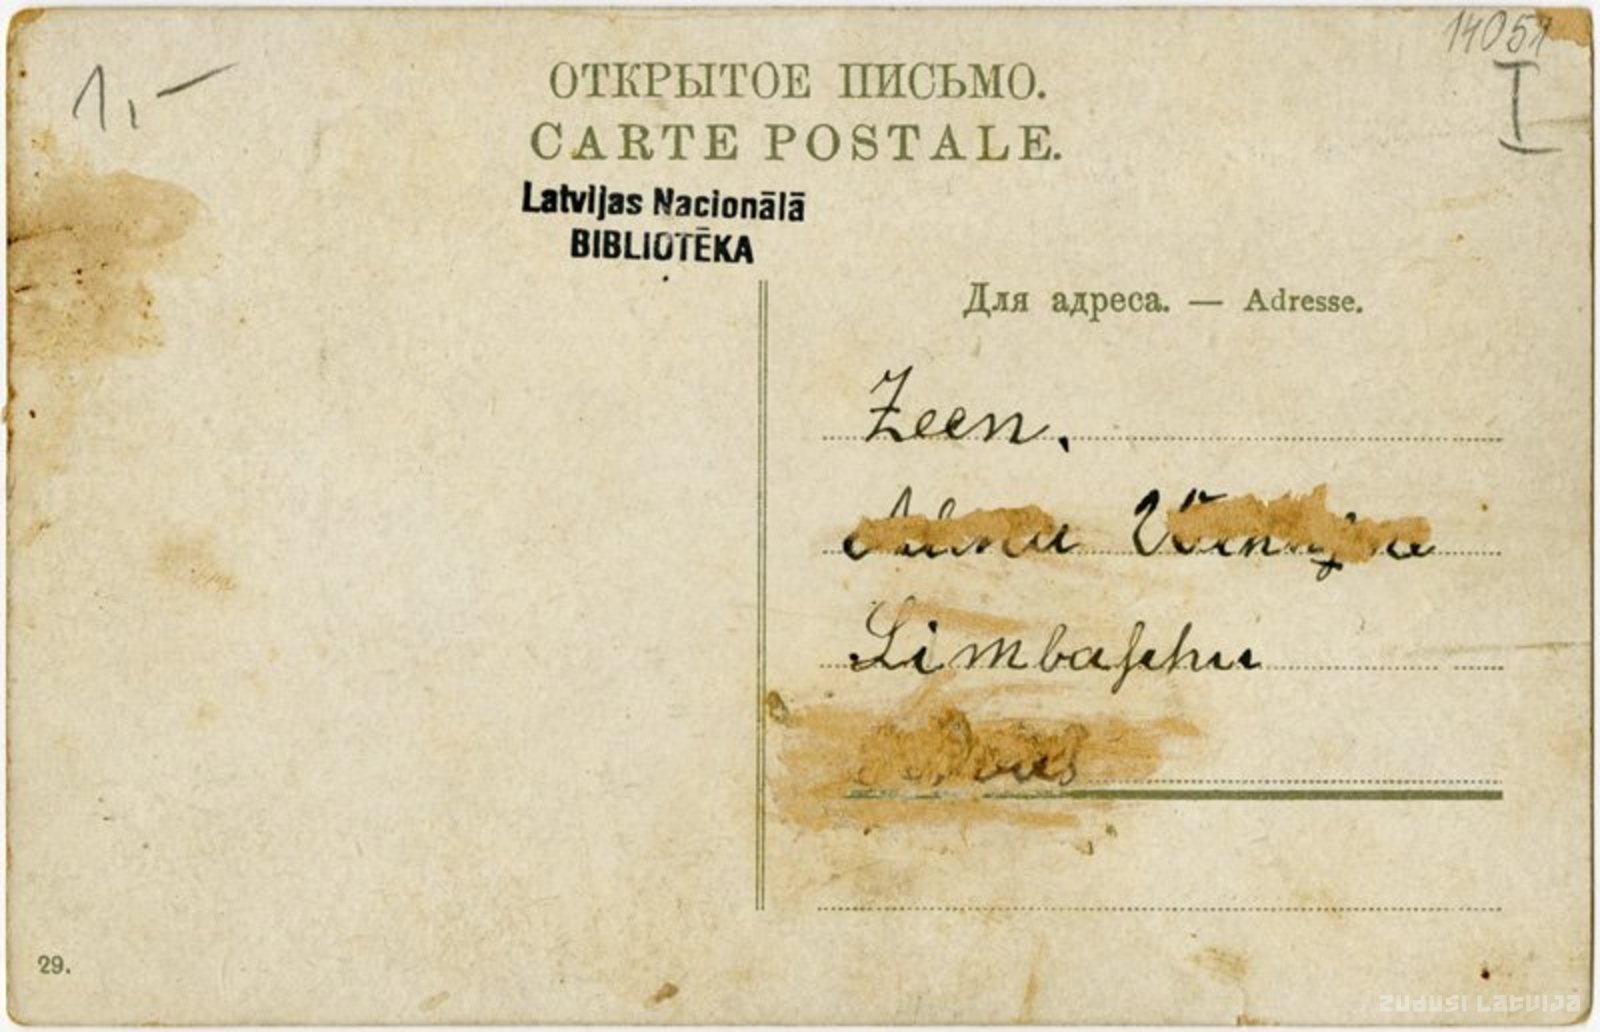 14051
I
1,-
ОТКРЫТОЕ ПИСЬМО.
CARTE POSTALE.
Latvijas Nacionālā
BIBLIOTĒKA
Для адреса. — Adresse.
Zeen.
Limbaschu
29.
ZUDUSI LATVIJA